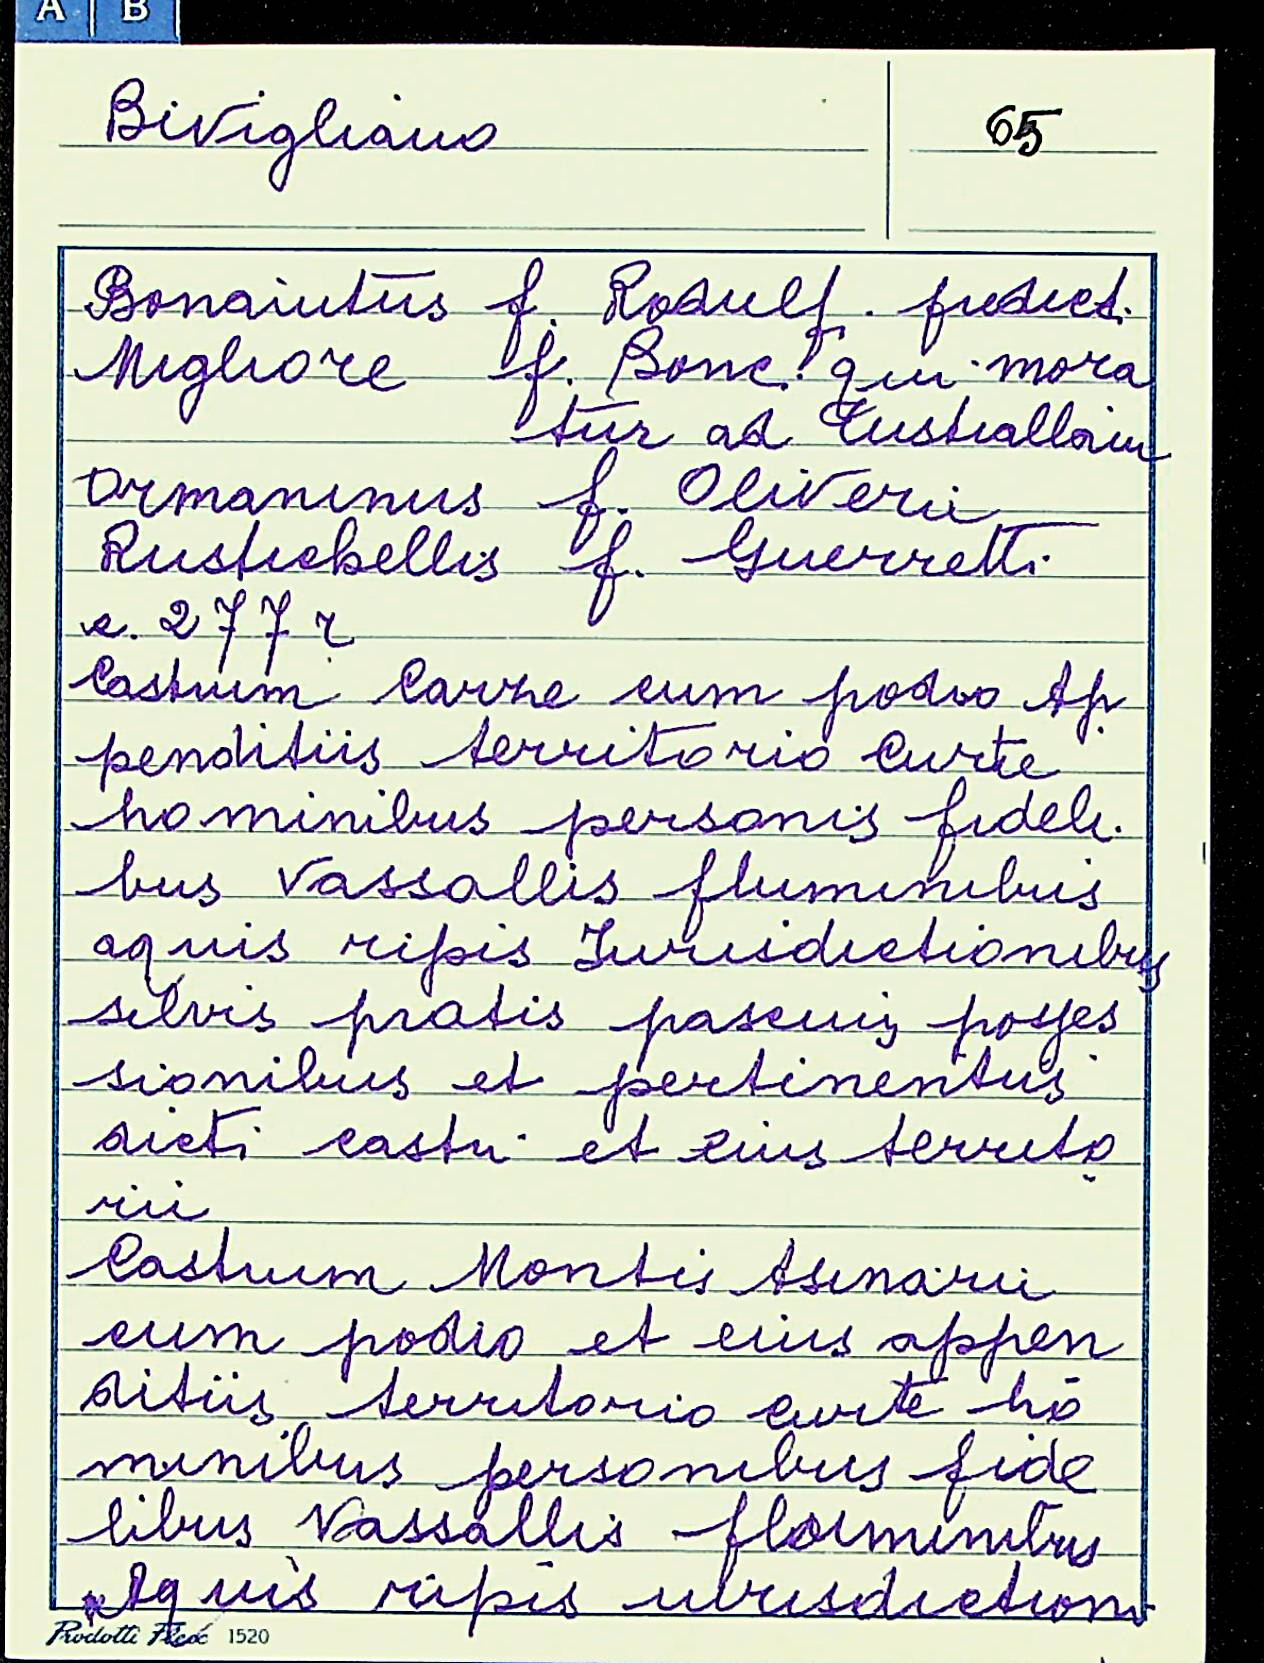 A B
Bivigliano 65
Bonaiutus f. Rodulf. predict.
Migliore f. Bonc. qui mora
tur ad
Ormaninus f. Oliverii
Rustichellis f. Guerretti
c. 277 r
Castrum Carze cum podio Ap
penditiis territorio Curte
hominibus personis fideli
bus Vassallis fluminibus
aquis ripis Jurisdictionibus
silvis pratis pascuis posses
sionibus et pertinentiis
dicti castri et eius territo
rii
Castrum Montis Asinarii
cum podio et eius appen
ditiis territorio curte ho
minibus personibus fide
libus Vassallis
Aquis ripis
Prodotti 1520